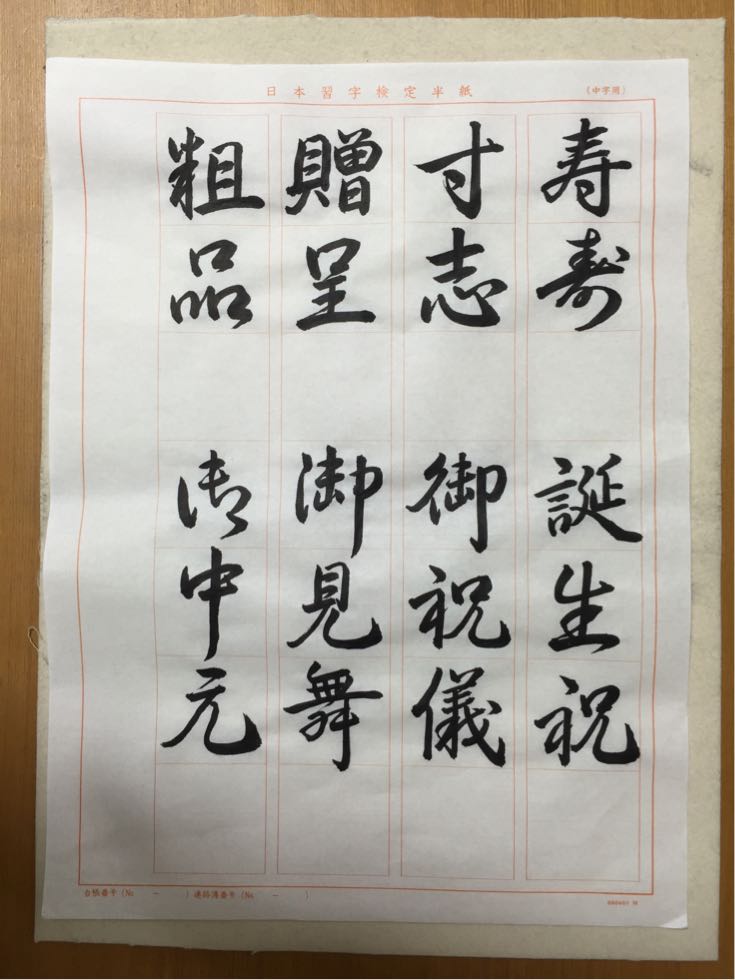 日本習字検定半紙
(中字用)
寿寿
誕生祝
寸志
御祝儀
贈呈
御見舞
粗品
御中元
台帳番号(No. - )連絡簿番号(No. - )